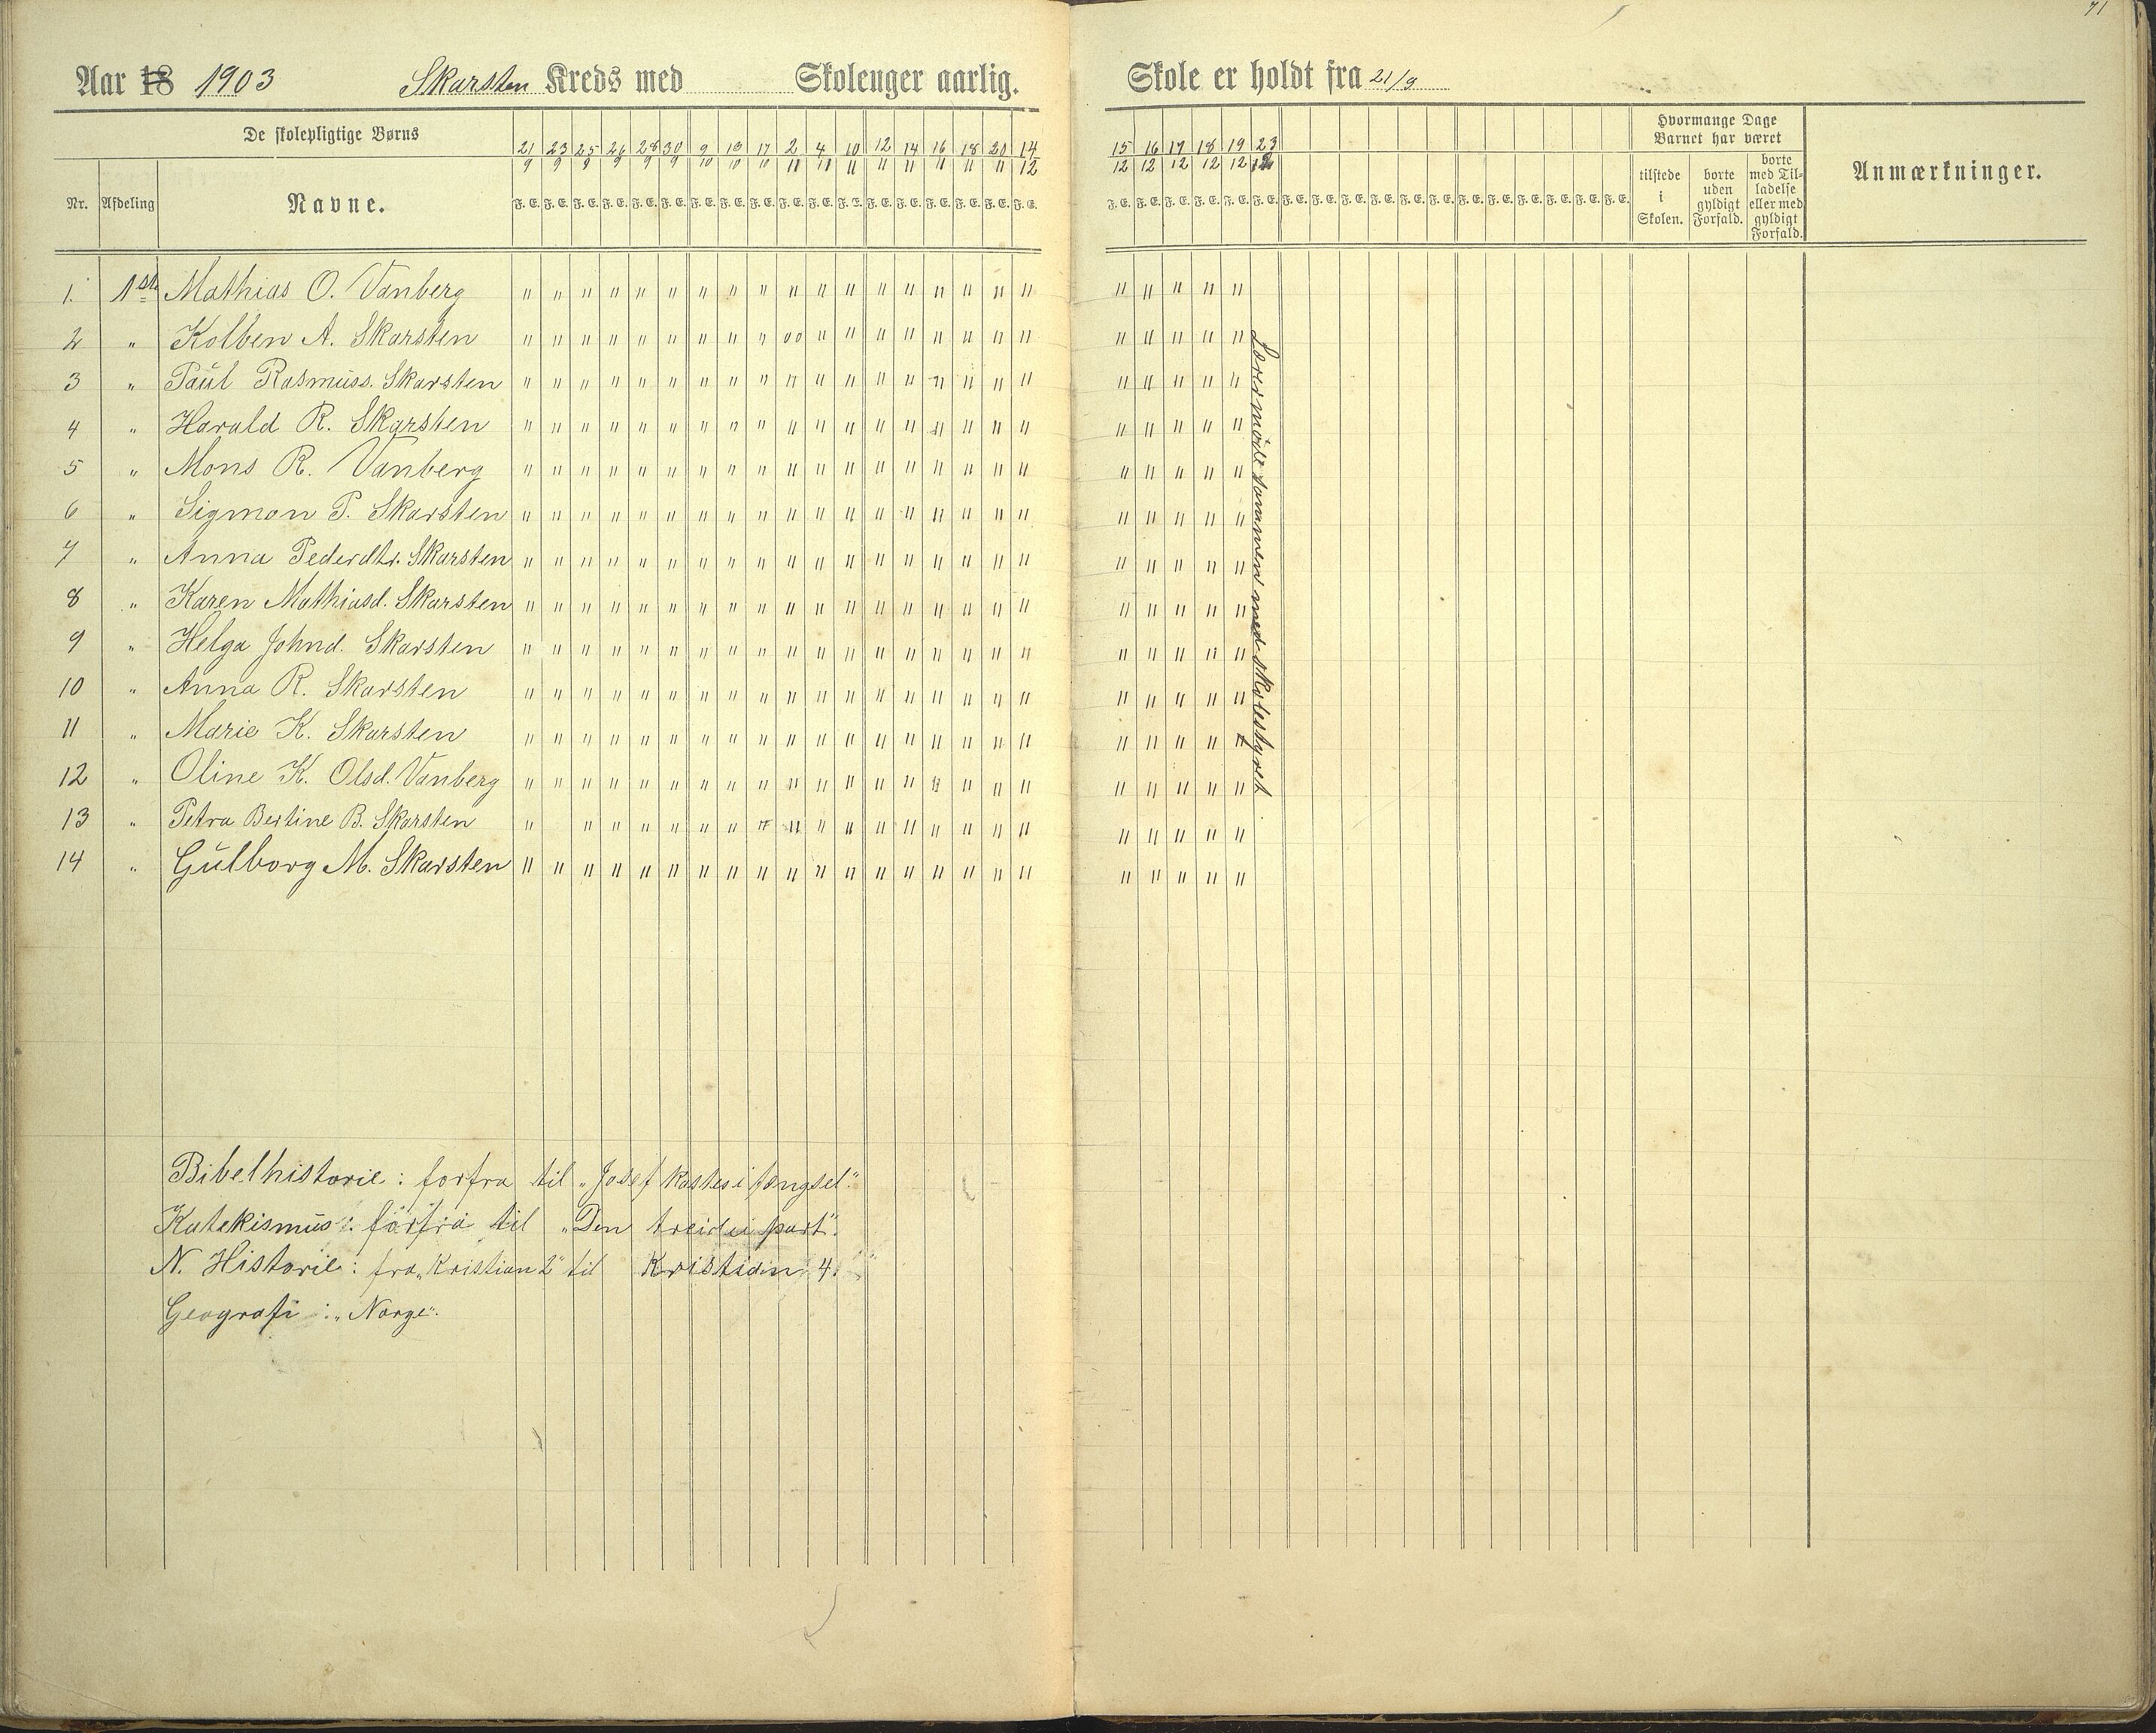 71
Aar 18 1903 Skarsten Kreds med Skolenger aarlig. Skole er holdt fra 21/9
De skolepligtige Børns
Nr. Afdeling Navne.
21/9 23/9 25/9 26/9 28/9 30/9 9/10 13/10 17/10 2/11 4/11 10/11 12/11 14/11 16/11 18/11 20/11 14/12 15/12 16/12 17/12 18/12 19/12 23/12
F. E. F. E. F. E. F. E. F. E. F. E. F. E. F. E. F. E. F. E. F. E. F. E. F. E. F. E. F. E. F. E. F. E. F. E.
F. E. F. E. F. E. F. E. F. E. F. E. F. E. F. E. F. E. F. E. F. E. F. E. F. E. F. E. F. E. F. E. F. E. F. E.
Hvormange Dage Barnet har været
tilstede i Skolen.
borte uden gyldigt Forfald.
borte med Tilladelse eller med gyldigt Forfald.
Anmærkninger.
1. 1ste Mathias O. Vanberg " " " " " " " " " " " " " " " " " " " " " " "
2 " Kolben A. Skarsten " " " " " " " " " 00 " " " " " " " " " " " " "
3 " Paul Rasmuss. Skarsten " " " " " " " " " " " " " " " " " " " " " " "
4 " Harald R. Skarsten " " " " " " " " " " " " " " " " " " " " " " "
5 " Mons R. Vanberg " " " " " " " " " " " " " " " " " " " " " " "
6 " Sigmon P. Skarsten " " " " " " " " " " " " " " " " " " " " " " "
7 " Anna Pederdtr. Skarsten " " " " " " " " " " " " " " " " " " " " " " "
8 " Karen Mathiasd. Skarsten " " " " " " " " " " " " " " " " " " " " " " "
9 " Helga Johnd. Skarsten " " " " " " " " " " " " " " " " " " " " " " "
10 " Anna R. Skarsten " " " " " " " " " " " " " " " " " " " " " " "
11 " Marie K. Skarsten " " " " " " " " " " " " " " " " " " " " " " "
12 " Oline K. Olsd. Vanberg " " " " " " " " " " " " " " " " " " " " " " "
13 " Petra Bertine B. Skarsten " " " " " " " " " " " " " " " " " " " " " "
14 " Gulborg M. Skarsten " " " " " " " " " " " " " " " " " " " " " " "
Lærermøde sammen med skolestyret
Bibelhistorie: forfra til „Josef kastes i fængsel"
Katekismus: forfra til „Den treidie part".
N. Historie: fra „Kristian 2" til Kristian 4."
Geografi: „Norge".